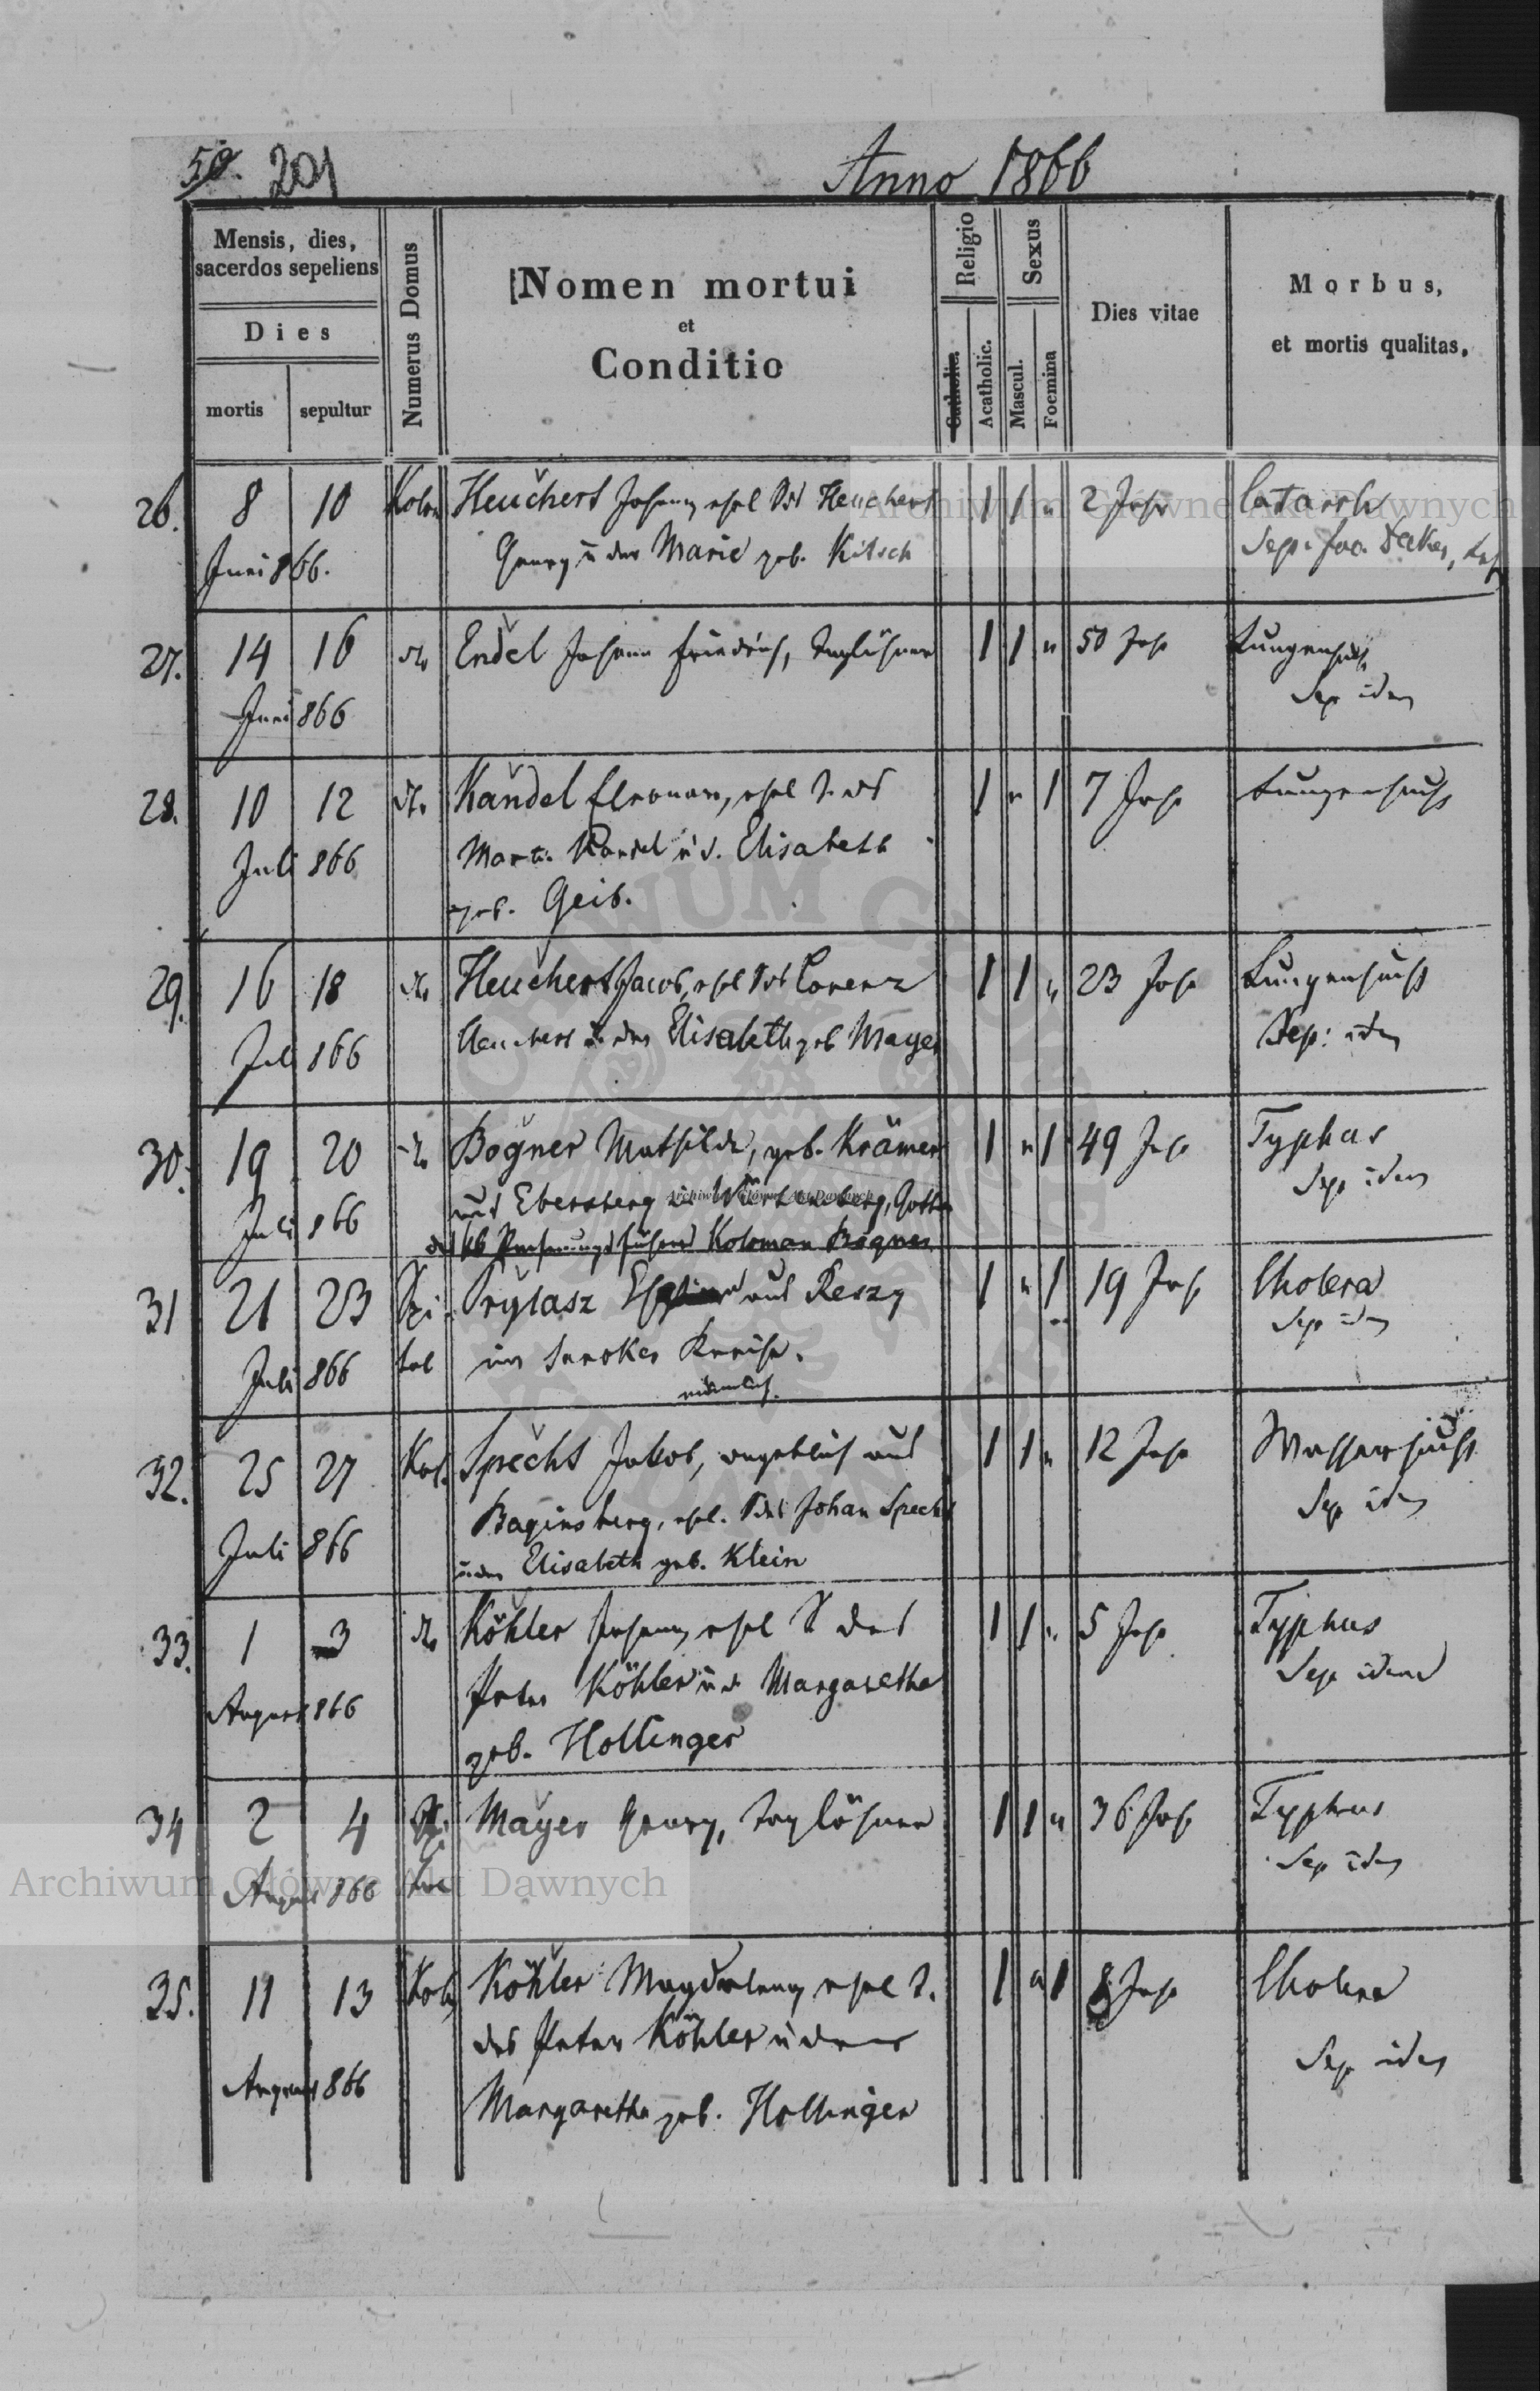 59. 201
Anno 1866
Mensis, dies,
sacerdos sepeliens
Dies
mortis
sepultur
Numerus Domus
Nomen mortui
et
Conditio
Religio
Catholic.
Acatholic.
Sexus
Mascul.
Foemina
Dies vitae
Morbus,
et mortis qualitas,
26. 8 10 Heuchert Johann, ehel S. des Heuchert 1 1 " 2 Jahr Catarrh
Juni 866. Georg u der Marie geb. Kitsch Sep:
27. 14 16 dto Endel Johann Friedrich, Taglöhner 1 1 " 50 Jahr Lungensucht
Juni 866 Sep idem
28. 10 12 dto Kandel Eleonora, ehel T. des 1 " 1 7 Jahr Lungensucht
Juli 866 Martin Kandel u d. Elisabeth
geb. Geib.
29. 16 18 dto Heuchert Jacob, ehel S des Lorenz 1 1 " 23 Jahr Lungensucht
Juli 866 Heuchert u der Elisabeth geb Mayer Sep: idem
30. 19 20 dto Bogner Mathilde, geb. Krämer 1 " 1 49 Jahr Typhus
Juli 866 aus Ebersberg in Würtemberg, Gattin Sep idem
des kk Rechnungsführers Koloman Bogner
31 21 23 Spi- Prytasz aus Reszy 1 " 1 19 Jahr Cholera
Juli 866 tal im Sanoker Kreise. Sep idem
32. 25 27 Kol. Specht Jakob, angeblich aus 1 1 " 12 Jahr Wassersucht
Juli 866 Baginsberg, ehel. S des Johan Specht Sep idem
u der Elisabeth geb. Klein
33. 1 3 dto Köhler Johann, ehel S des 1 1 " 5 Jahr Typhus
August 866 Peter Köhler u d Margaretha Sep idem
geb. Hollinger
34 2 4 Mayer Georg, Taglöhner 1 1 " 36 Jahr Typhus
August 866 Sep idem
35. 11 13 Kol. Köhler Magdalena, ehel T. 1 " 1 8 Jahr Cholera
des Peter Köhler u der
August 866 Sep idem
Margaretha geb. Hollinger
Archiwum Główne Akt Dawnych
Archiwum Główne Akt Dawnych
Archiwum Główne Akt Dawnych